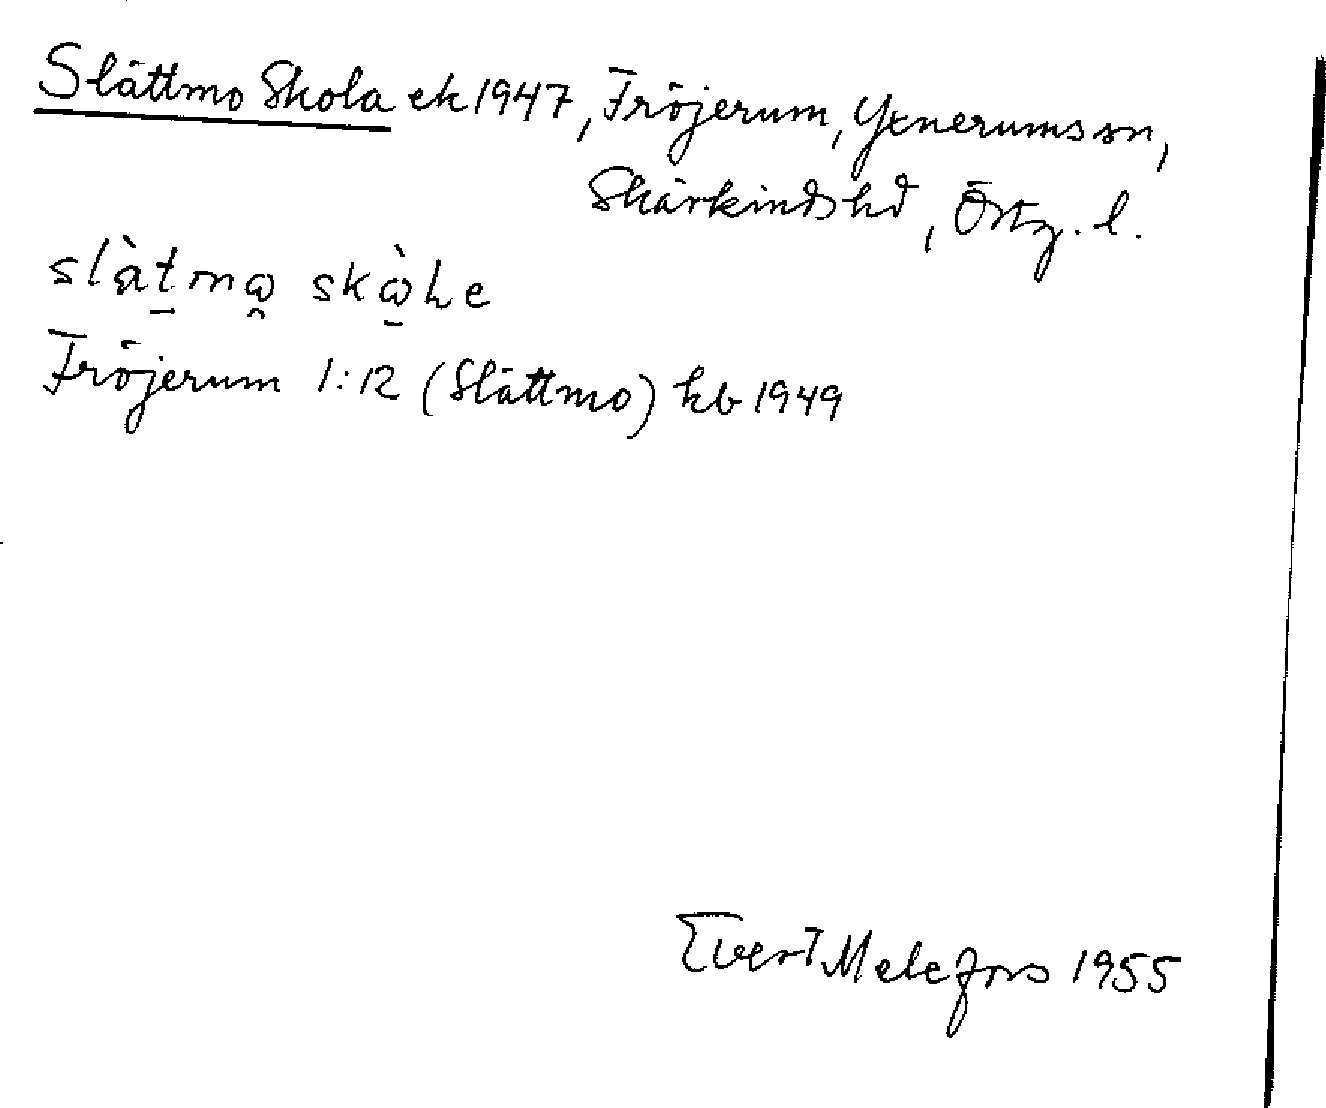 Slättmo Skola ek 1947, Fröjerum, Yxnerums sn,
Skärkinds hd, Östg. l.
slàt̠mω̯ skὼ̠le
Fröjerum 1:12 (Slättmo) kb 1949
Evert Melefors 1955